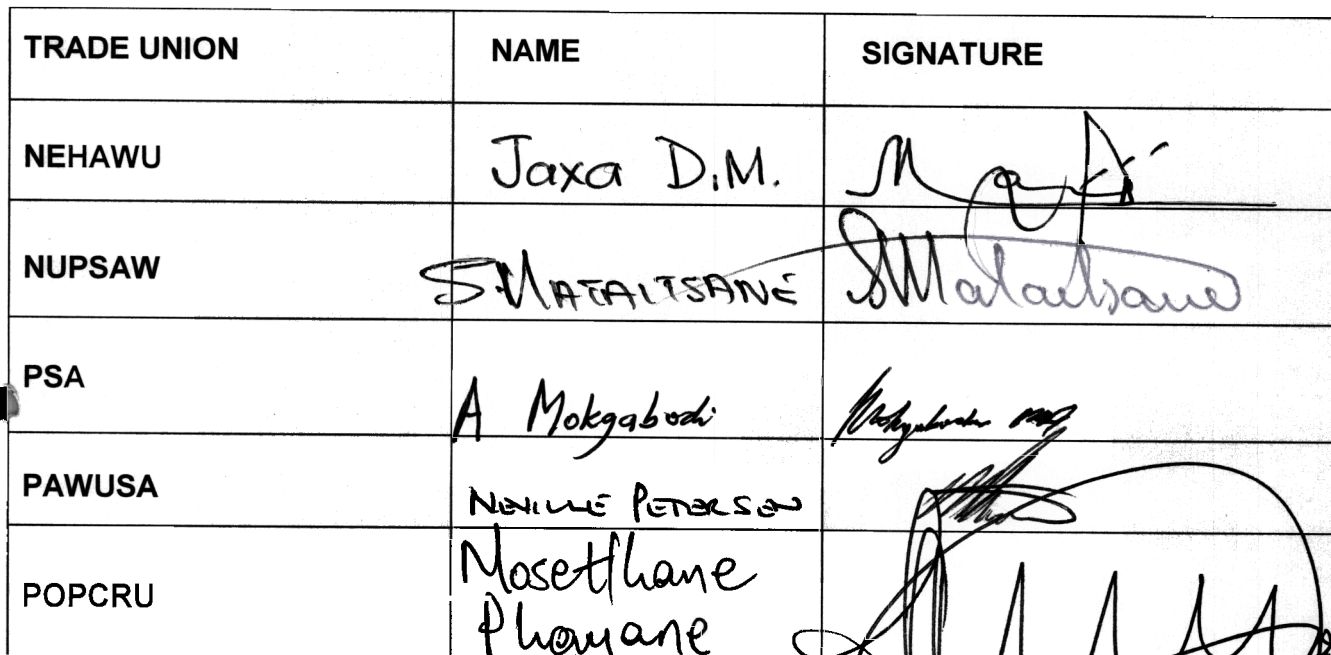 TRADE UNION NAME SIGNATURE
NEHAWU Jaxa D.M.
NUPSAW S MATAITSANE SMataitsane
PSA A Mokgabodi Mokgabodi
PAWUSA NEVILLE PETERSEN
POPCRU Mosetlhane
Phoyane